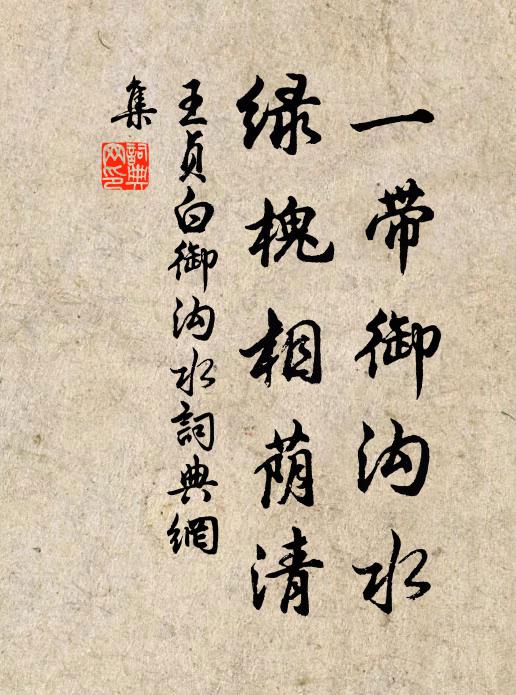 一带御沟水
绿槐相荫清
王贞白御沟水詞典網
集
詞典網印